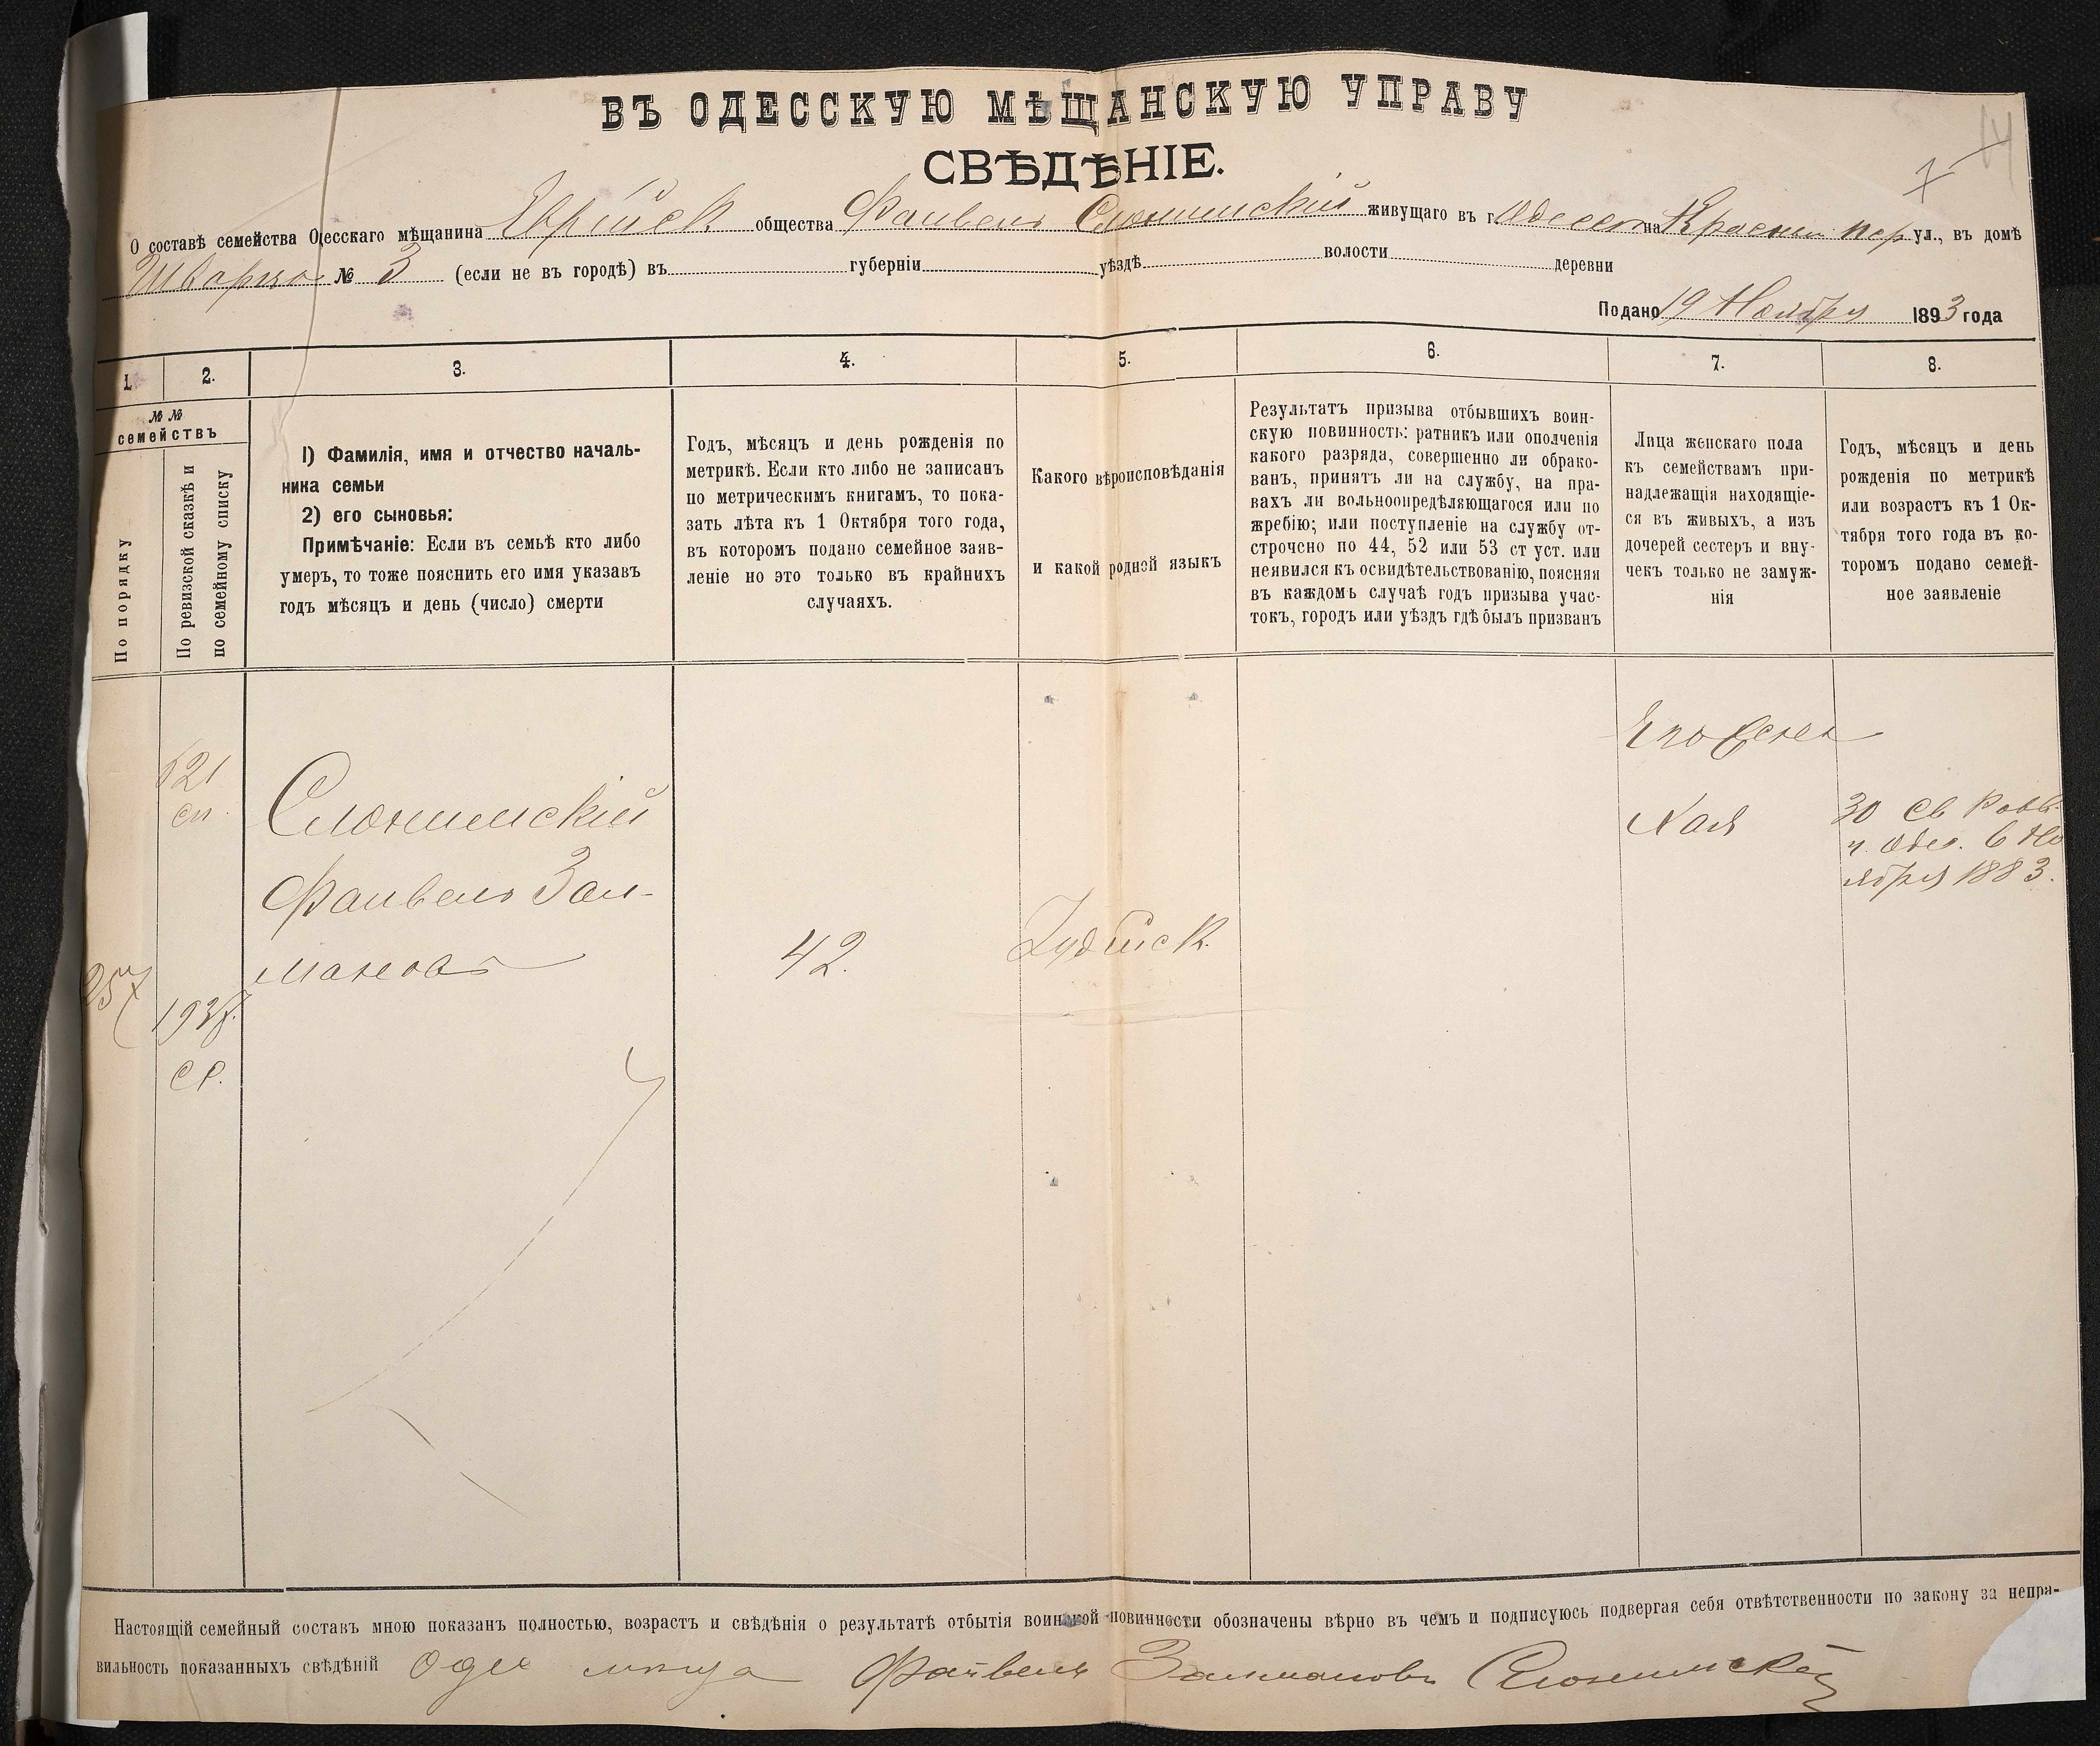 ВЪ ОДЕССКУЮ МѢЩАНСКУЮ УПРАВУ
СВѢДѢНІЕ.
О составѣ семейства Одесскаго мѣщанина Еврейск общества Файвель Слонимскій живущаго въ г. Одессѣ на Красный пер ул., въ домѣ
Шварца № 3 (если не въ городѣ) въ губерніи уѣздѣ волости деревни
Подано 19 Ноября 1893 года
1. 2. 3. 4. 5. 6. 7. 8.
№ №
семействъ
По порядку
По ревизской сказкѣ и
по семейному списку
1) Фамилія, имя и отчество началь-
ника семьи
2) его сыновья:
Примѣчаніе: Если въ семьѣ кто либо
умеръ, то тоже пояснить его имя указавъ
годъ мѣсяцъ и день (число) смерти
Годъ, мѣсяцъ и день рожденія по
метрикѣ. Если кто либо не записанъ
по метрическимъ книгамъ, то пока-
зать лѣта къ 1 Октября того года,
въ которомъ подано семейное заяв-
леніе но это только въ крайнихъ
случаяхъ.
Какого вѣроисповѣданія
и какой родной языкъ
Результатъ призыва отбывшихъ воин-
скую повинность: ратникъ или ополченія
какого разряда, совершенно ли обрако-
ванъ, принятъ ли на службу, на пра-
вахъ ли вольноопредѣляющагося или по
жребію; или поступленіе на службу от-
строчено по 44, 52 или 53 ст уст. или
неявился къ освидѣтельствованію, поясняя
въ каждомъ случаѣ годъ призыва учас-
токъ, городъ или уѣздъ гдѣ былъ призванъ
Лица женскаго пола
къ семействамъ при-
надлежащія находящіе-
ся въ живыхъ, а изъ
дочерей сестеръ и вну-
чекъ только не замуж-
нія
Годъ, мѣсяцъ и день
рожденія по метрикѣ
или возрастъ къ 1 Ок-
тября того года въ ко-
торомъ подано семей-
ное заявленіе
621
сп.
Слонимскій
Файвель Зал-
мановъ
257
ср.
42.
Іудейск.
Его жена
Хая
30 св Равв.
г. Одес. 6 Но
ября 1883.
Настоящій семейный составъ мною показанъ полностью, возрастъ и свѣдѣнія о результатѣ отбытія воинской повинности обозначены вѣрно въ чемъ и подписуюсь подвергая себя отвѣтственности по закону за непра-
вильность показанныхъ свѣдѣній Одес Файвель Залмановъ Слонимскій